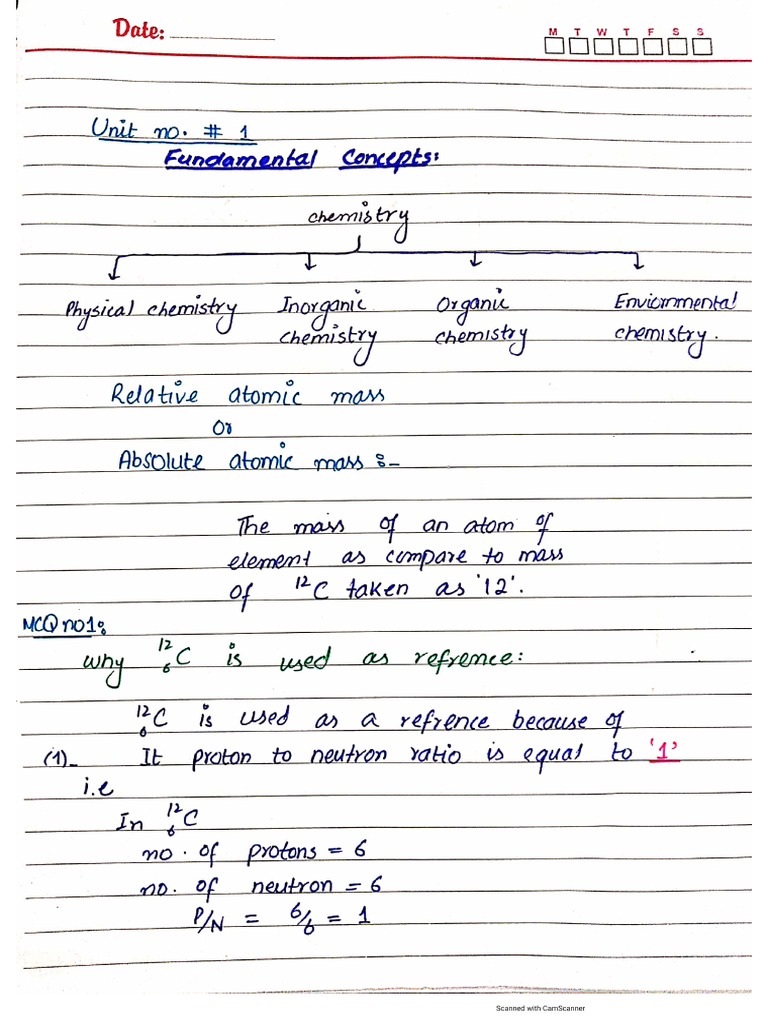 Date:
M T W T F S S
Unit no. # 1
Fundamental Concepts:
chemistry
Physical chemistry Inorganic chemistry Organic chemistry Enviornmental chemistry.
Relative atomic mass
Or
Absolute atomic mass :-
The mass of an atom of
element as compare to mass
of ¹²C taken as '12'.
MCQ no1:
why ¹²₆C is used as refrence:
¹²₆C is used as a refrence because of
(1)- It proton to neutron ratio is equal to '1'
i.e
In ¹²₆C
no. of protons = 6
no. of neutron = 6
P/N = 6/6 = 1
Scanned with CamScanner